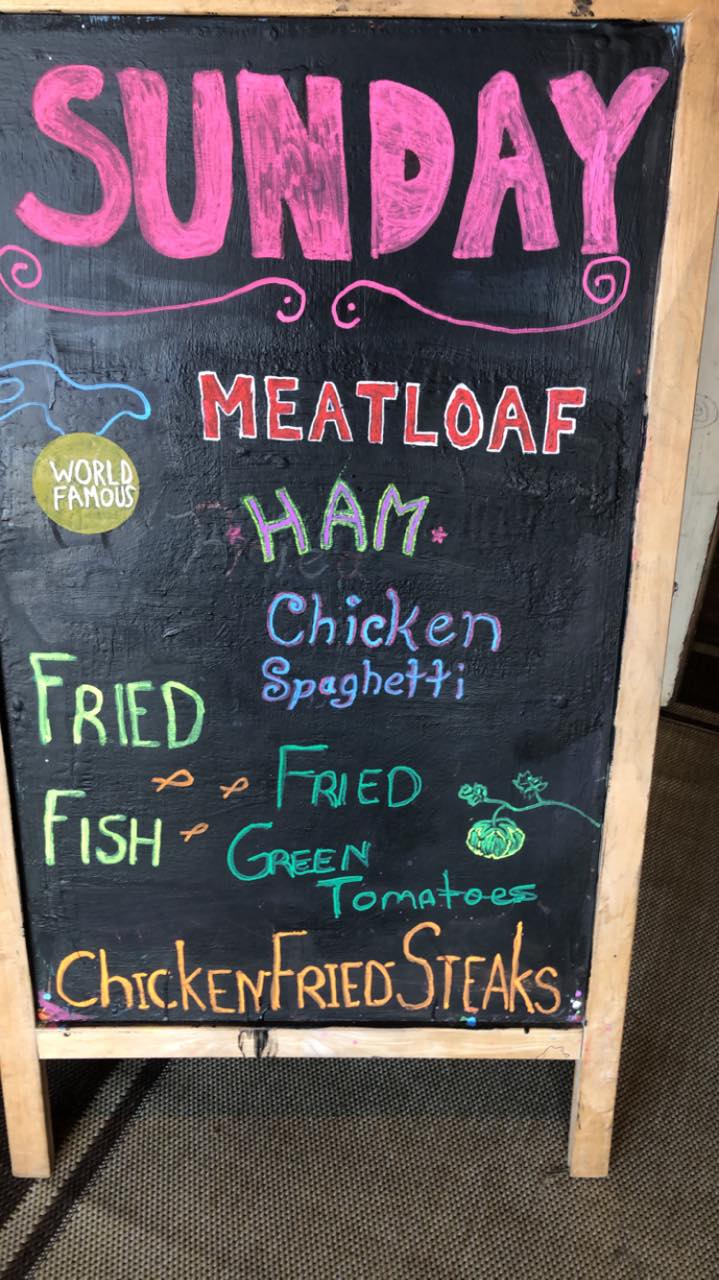 SUNDAY
MEATLOAF
WORLD
FAMOUS
HAM
Chicken
Spaghetti
FRIED
FISH
FRIED
GREEN
TOMATOES
CHICKEN FRIED STEAKS